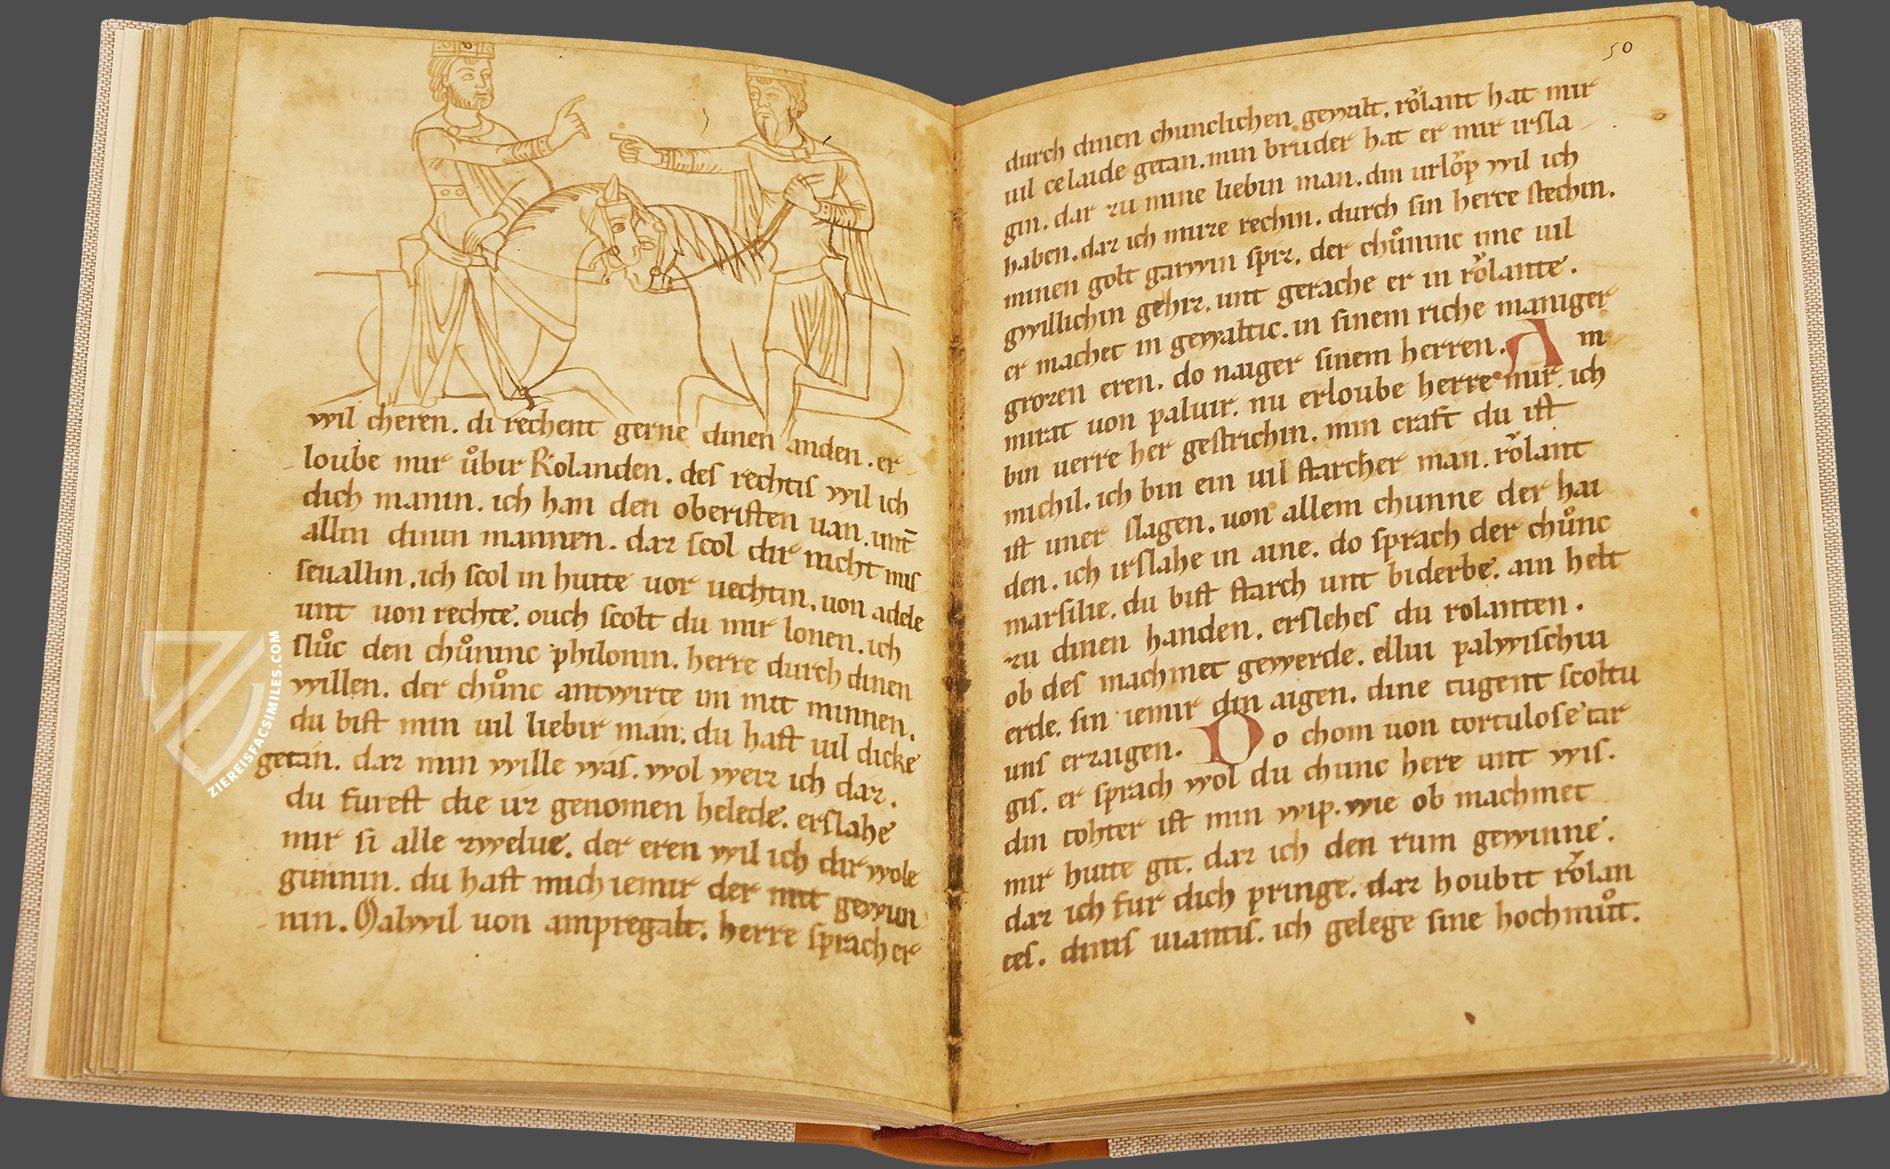 wil cheren. di rechent gerne dinen anden. er
loube mir uͦbir Rolanden. des rechtis wil ich
dich manin. ich han den oberisten uan. unt
allin dinin mannen. daz scol dir nicht mis
seuallin. ich scol in hiute uor uechtin. uon adele
unt uon rechte. ouch scolt du mir lonen. ich
sluͦc den chuͦninc philonin. herre durch dinen
willen. der chuͦnc antwirte im mit minnen.
du bist min uil liebir man. du hast uil dicke
getan. daz min wille was. wol weiz ich daz.
du furest die uz genomen helede. erslahe
mir si alle zwelue. der eren wil ich dir wole
gunnin. du hast mich iemir der mit gewun
nin. Malwil uon ampregalt. herre sprach er
50
durch dinen chunclichen gewalt. roͮlant hat mir
uil ce laide getan. min bruder hat er mir irsla
gin. dar zu mine liebin man. din urloͮp wil ich
haben. daz ich muze rechin. durch sin herce stechin.
minen golt garwin spiz. der chuͦninc ime uil
gwillichin gehiz. unt gerache er in roͮlante.
er machet in gewaltic. in sinem riche maniger
grozen eren. do naiger sinem herren. A m
mirat uon paluir. nu erloube herre mir. ich
bin uerre her gestrichin. min craft du ist
michil. ich bin ein uil starcher man. roͮlant
ist uner slagen. uon allem chunne der hai
den. ich irslahe in aine. do sprach der chuͦnc
marsilie. du bist starch unt biderbe. ain helt
zu dinen handen. erslehes du rolanten.
ob des machmet gewerde. elliu palwischiu
erde. sin iemir din aigen. dine tugent scoltu
uns erzaigen. Do chom uon tortulose tar
gis. er sprach wol du chunc here unt wis.
din tohter ist min wip. wie ob machmet
mir hiute git. daz ich den rum gewinne.
daz ich fur dich pringe. daz houbit roͮlan
tes. dinis uiantis. ich gelege sine hochmuͦt.
ZIEREISFACSIMILES.COM